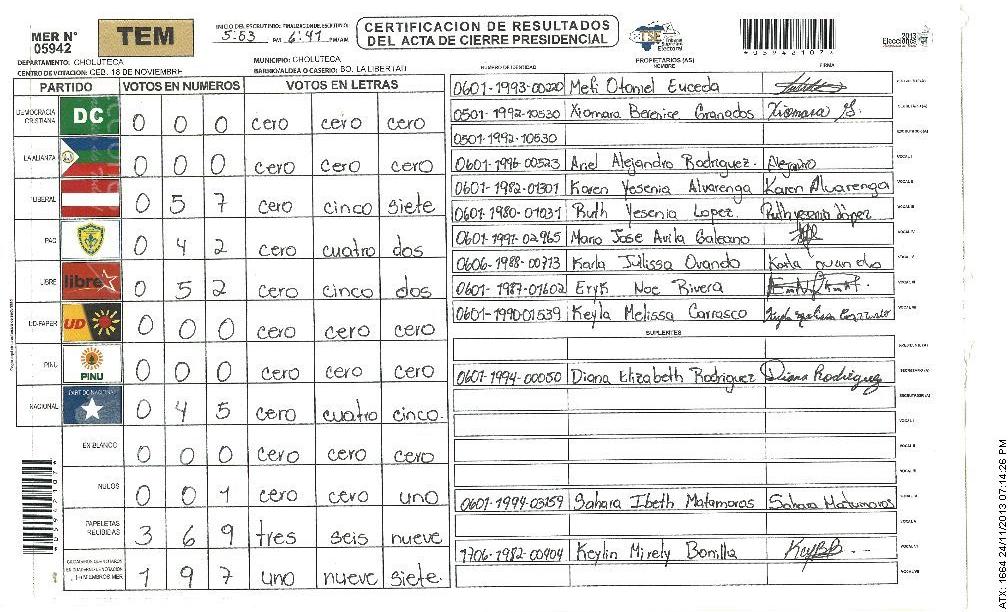 MER N° 05942
TEM
INICIO DEL ESCRUTINIO: FINALIZACION DE ESCRUTINIO:
5:53 PM 6:41 PM/AM
CERTIFICACION DE RESULTADOS
DEL ACTA DE CIERRE PRESIDENCIAL
TSE Tribunal Supremo Electoral
*05942107*
2013 Elecciones
DEPARTAMENTO: CHOLUTECA
MUNICIPIO: CHOLUTECA
CENTRO DE VOTACION: CEB. 18 DE NOVIEMBRE
BARRIO/ALDEA O CASERIO: BO. LA LIBERTAD
PARTIDO VOTOS EN NUMEROS VOTOS EN LETRAS
DEMOCRACIA CRISTIANA DC 0 0 0 cero cero cero
LA ALIANZA 0 0 0 cero cero cero
LIBERAL 0 5 7 cero cinco siete
PAC 0 4 2 cero cuatro dos
LIBRE libre 0 5 2 cero cinco dos
UD-FAPER UD 0 0 0 cero cero cero
PINU PINU 0 0 0 cero cero cero
NACIONAL PARTIDO NACIONAL 0 4 5 cero cuatro cinco.
EN BLANCO 0 0 0 cero cero cero
NULOS 0 0 1 cero cero uno
PAPELETAS RECIBIDAS 3 6 9 tres seis nueve
(+) MIEMBROS MER 1 9 7 uno nueve siete.
NUMERO DE IDENTIDAD PROPIETARIOS (AS) NOMBRE FIRMA
0601-1993-00220 Meli Otoniel Euceda
0501-1992-10530 Xiomara Berenice Granados Xiomara G.
0501-1992-10530
0601-1996-00523 Ariel Alejandro Rodriguez. Alejandro VOCAL I
0601-1982-01301 Karen Yesenia Alvarenga Karen Alvarenga VOCAL II
0601-1980-01031 Ruth Yesenia Lopez. Ruth yesenia lópez VOCAL III
0601-1991-02965 Mario Jose Avila Galeano VOCAL IV
0606-1988-00713 Karla Julissa Ovando Karla ovando VOCAL V
0601-1987-01602 Eryk Noe Rivera
0601-1990-01539 Keyla Melissa Carrasco
SUPLENTES
0601-1994-00050 Diana Elizabeth Rodriguez Diana Rodriguez SECRETARIO (A)
ESCRUTADOR (A)
VOCAL I
VOCAL II
VOCAL III
0601-1994-03159 Sahara Ibeth Matamoros Sahara Matamoros
1706-1982-00904 Keylin Mirely Bonilla
ATX: 1664 24/11/2013 07:14:26 PM